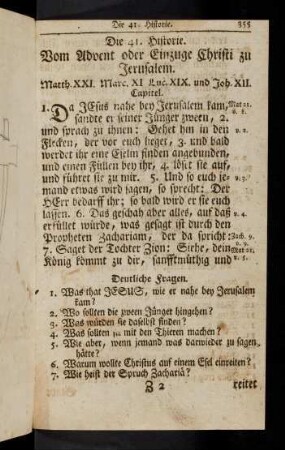 Die 41. Historie. 355
Die 41. Historie.
Vom Advent oder Einzuge Christi zu
Jerusalem.
Matth. XXI. Marc. XI. Luc. XIX. und Joh. XII.
Capitel.
1. Da JEsus nahe bey Jerusalem kam, Mat 21.
sandte er seiner Jünger zween, 2. v. 1.
und sprach zu ihnen: Gehet hin in den v. 2.
Flecken, der vor euch lieget, 3. und bald
werdet ihr eine Eselin finden angebunden,
und einen Füllen bey ihr, 4. löset sie auf,
und führet sie zu mir. 5. Und so euch je- v. 3.
mand etwas wird sagen, so sprecht: Der
HErr bedarff ihr; so bald wird er sie euch
lassen. 6. Das geschah aber alles, auf daß v. 4.
erfüllet würde, was gesagt ist durch den
Propheten Zachariam, der da spricht: Zach. 9.
7. Saget der Tochter Zion: Siehe, dein v. 9. Mat 21.
König kömmt zu dir, sanfftmüthig und v. 5.
Deutliche Fragen.
1. Was that JESUS, wie er nahe bey Jerusalem
kam?
2. Wo sollten die zween Jünger hingehen?
3. Was würden sie daselbst finden?
4. Was sollten sie mit den Thieren machen?
5. Wie aber, wenn jemand was darwieder zu sagen
hätte?
6. Warum wollte Christus auf einem Esel einreiten?
7. Wie heist der Spruch Zachariä?
Z 2 reitet